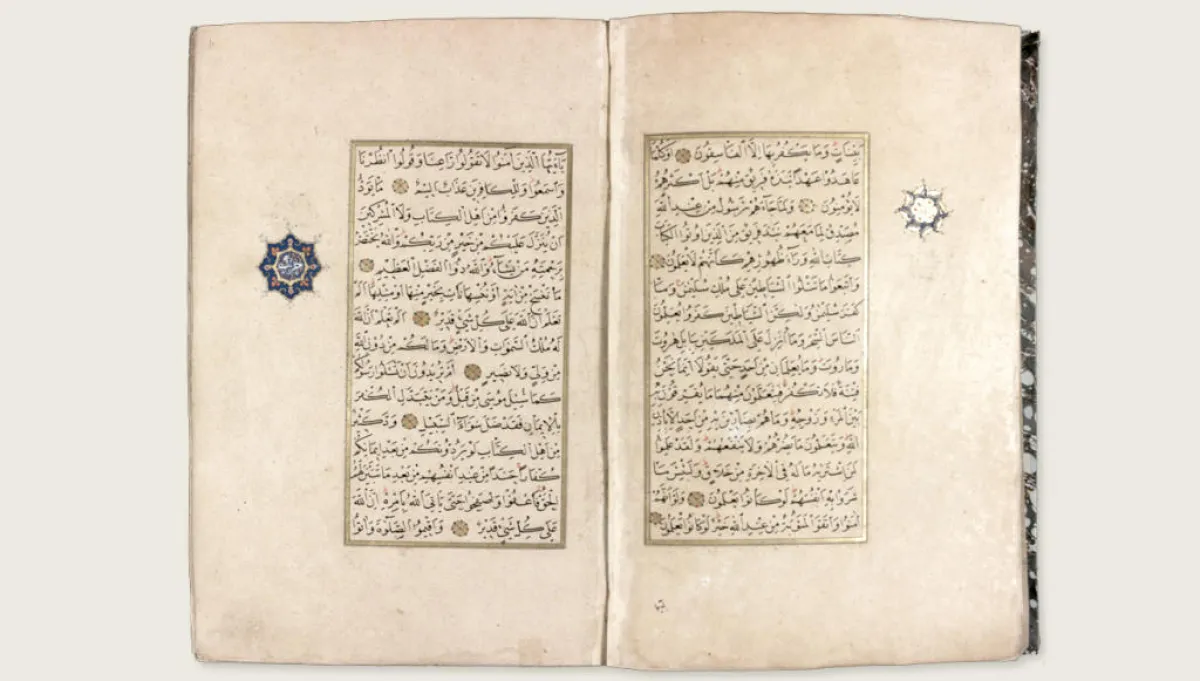 بَيِّنَاتٍ وَمَا يَكْفُرُ بِهَا إِلَّا الْفَاسِقُونَ اَوَكُلَّمَا
عَاهَدُوا عَهْدًا نَبَذَهُ فَرِيقٌ مِنْهُمْ بَلْ اَكْثَرُهُمْ
لَا يُؤْمِنُونَ وَلَمَّا جَاءَهُمْ رَسُولٌ مِنْ عِنْدِ اللهِ
مُصَدِّقٌ لِمَا مَعَهُمْ نَبَذَ فَرِيقٌ مِنَ الَّذِينَ اُوتُوا الْكِتَابَ
كِتَابَ اللهِ وَرَاءَ ظُهُورِهِمْ كَاَنَّهُمْ لَا يَعْلَمُونَ
وَاتَّبَعُوا مَا تَتْلُوا الشَّيَاطِينُ عَلَى مُلْكِ سُلَيْمٰنَ وَمَا
كَفَرَ سُلَيْمٰنُ وَلٰكِنَّ الشَّيَاطِينَ كَفَرُوا يُعَلِّمُونَ
النَّاسَ السِّحْرَ وَمَا اُنْزِلَ عَلَى الْمَلَكَيْنِ بِبَابِلَ هٰرُوتَ
وَمَارُوتَ وَمَا يُعَلِّمَانِ مِنْ اَحَدٍ حَتَّى يَقُولَا اِنَّمَا نَحْنُ
فِتْنَةٌ فَلَا تَكْفُرْ فَيَتَعَلَّمُونَ مِنْهُمَا مَا يُفَرِّقُونَ بِهِ
بَيْنَ الْمَرْءِ وَزَوْجِهِ وَمَا هُمْ بِضَارِّينَ بِهِ مِنْ اَحَدٍ اِلَّا بِاِذْنِ
اللهِ وَيَتَعَلَّمُونَ مَا يَضُرُّهُمْ وَلَا يَنْفَعُهُمْ وَلَقَدْ عَلِمُوا
لَمَنِ اشْتَرٰيهُ مَا لَهُ فِي الْاٰخِرَةِ مِنْ خَلَاقٍ وَلَبِئْسَ مَا
شَرَوْا بِهِ اَنْفُسَهُمْ لَوْ كَانُوا يَعْلَمُونَ وَلَوْ اَنَّهُمْ
اٰمَنُوا وَاتَّقَوْا لَمَثُوبَةٌ مِنْ عِنْدِ اللهِ خَيْرٌ لَوْ كَانُوا يَعْلَمُونَ
يَاءَيُّهَا الَّذِينَ اٰمَنُوا لَا تَقُولُوا رَاعِنَا وَقُولُوا انْظُرْنَا
وَاسْمَعُوا وَلِلْكَافِرِينَ عَذَابٌ اَلِيمٌ مَا يَوَدُّ
الَّذِينَ كَفَرُوا مِنْ اَهْلِ الْكِتَابِ وَلَا الْمُشْرِكِينَ
اَنْ يُنَزَّلَ عَلَيْكُمْ مِنْ خَيْرٍ مِنْ رَبِّكُمْ وَاللهُ يَخْتَصُّ
بِرَحْمَتِهِ مَنْ يَشَاءُ وَاللهُ ذُوا الْفَضْلِ الْعَظِيمِ
مَا نَنْسَخْ مِنْ اٰيَةٍ اَوْ نُنْسِهَا نَأْتِ بِخَيْرٍ مِنْهَا اَوْ مِثْلِهَا اَلَمْ
تَعْلَمْ اَنَّ اللهَ عَلَى كُلِّ شَيْءٍ قَدِيرٌ اَلَمْ تَعْلَمْ اَنَّ اللهَ
لَهُ مُلْكُ السَّمٰوَاتِ وَالْاَرْضِ وَمَا لَكُمْ مِنْ دُونِ اللهِ
مِنْ وَلِيٍّ وَلَا نَصِيرٍ اَمْ تُرِيدُونَ اَنْ تَسْئَلُوا رَسُولَكُمْ
كَمَا سُئِلَ مُوسَى مِنْ قَبْلُ وَمَنْ يَتَبَدَّلِ الْكُفْرَ
بِالْاِيمَانِ فَقَدْ ضَلَّ سَوَاءَ السَّبِيلِ وَدَّ كَثِيرٌ
مِنْ اَهْلِ الْكِتَابِ لَوْ يَرُدُّونَكُمْ مِنْ بَعْدِ اِيمَانِكُمْ
كُفَّارًا حَسَدًا مِنْ عِنْدِ اَنْفُسِهِمْ مِنْ بَعْدِ مَا تَبَيَّنَ لَهُمُ
الْحَقُّ فَاعْفُوا وَاصْفَحُوا حَتَّى يَأْتِيَ اللهُ بِاَمْرِهِ اِنَّ اللهَ
عَلَى كُلِّ شَيْءٍ قَدِيرٌ وَاَقِيمُوا الصَّلٰوةَ وَاٰتُوا